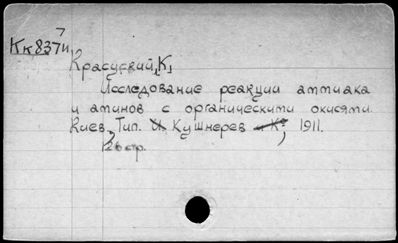 Кк837и
Красуский, К.
Исследование реакции аммиака
и аминов с органическими окисями.
Киев, Тип. И. Кушнерев и Кº, 1911.
126 стр.